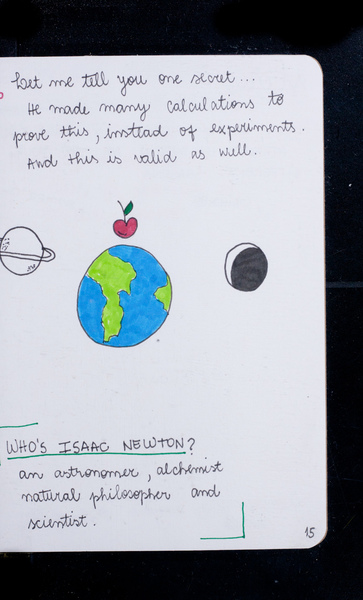 Let me tell you one secret...
He made many calculations to
prove this, instead of experiments.
And this is valid as well.
WHO'S ISAAC NEWTON?
an astronomer, alchemist
natural philosopher and
scientist.
15